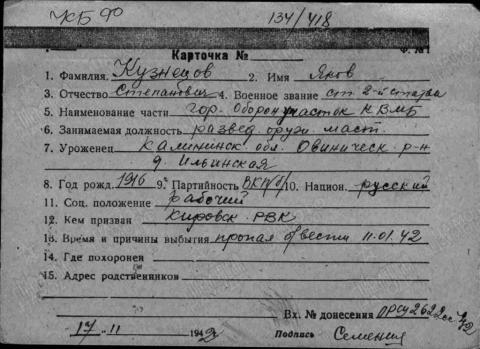 КБФ 134/418
Карточка № Ф. № 1
1. Фамилия. Кузнецов 2. Имя Яков
3. Отчество Степанович 4. Военное звание ст. 2-й статьи
5. Наименование части гор. Оборон участок КВМБ
6. Занимаемая должность развед. оруж. маст.
7. Уроженец Калининск. обл. Овиническ. р-н
д. Ильинская
8. Год рожд. 1916 9. Партийность ВКП/б/ 10. Национ. русский
11. Соц. положение рабочий
12. Кем призван Кировск. РВК
13. Время и причины выбытия пропал б/вести 11.01.42
14. Где похоронен
15. Адрес родственников
Вх. № донесения
17. 11 1942г Подпись